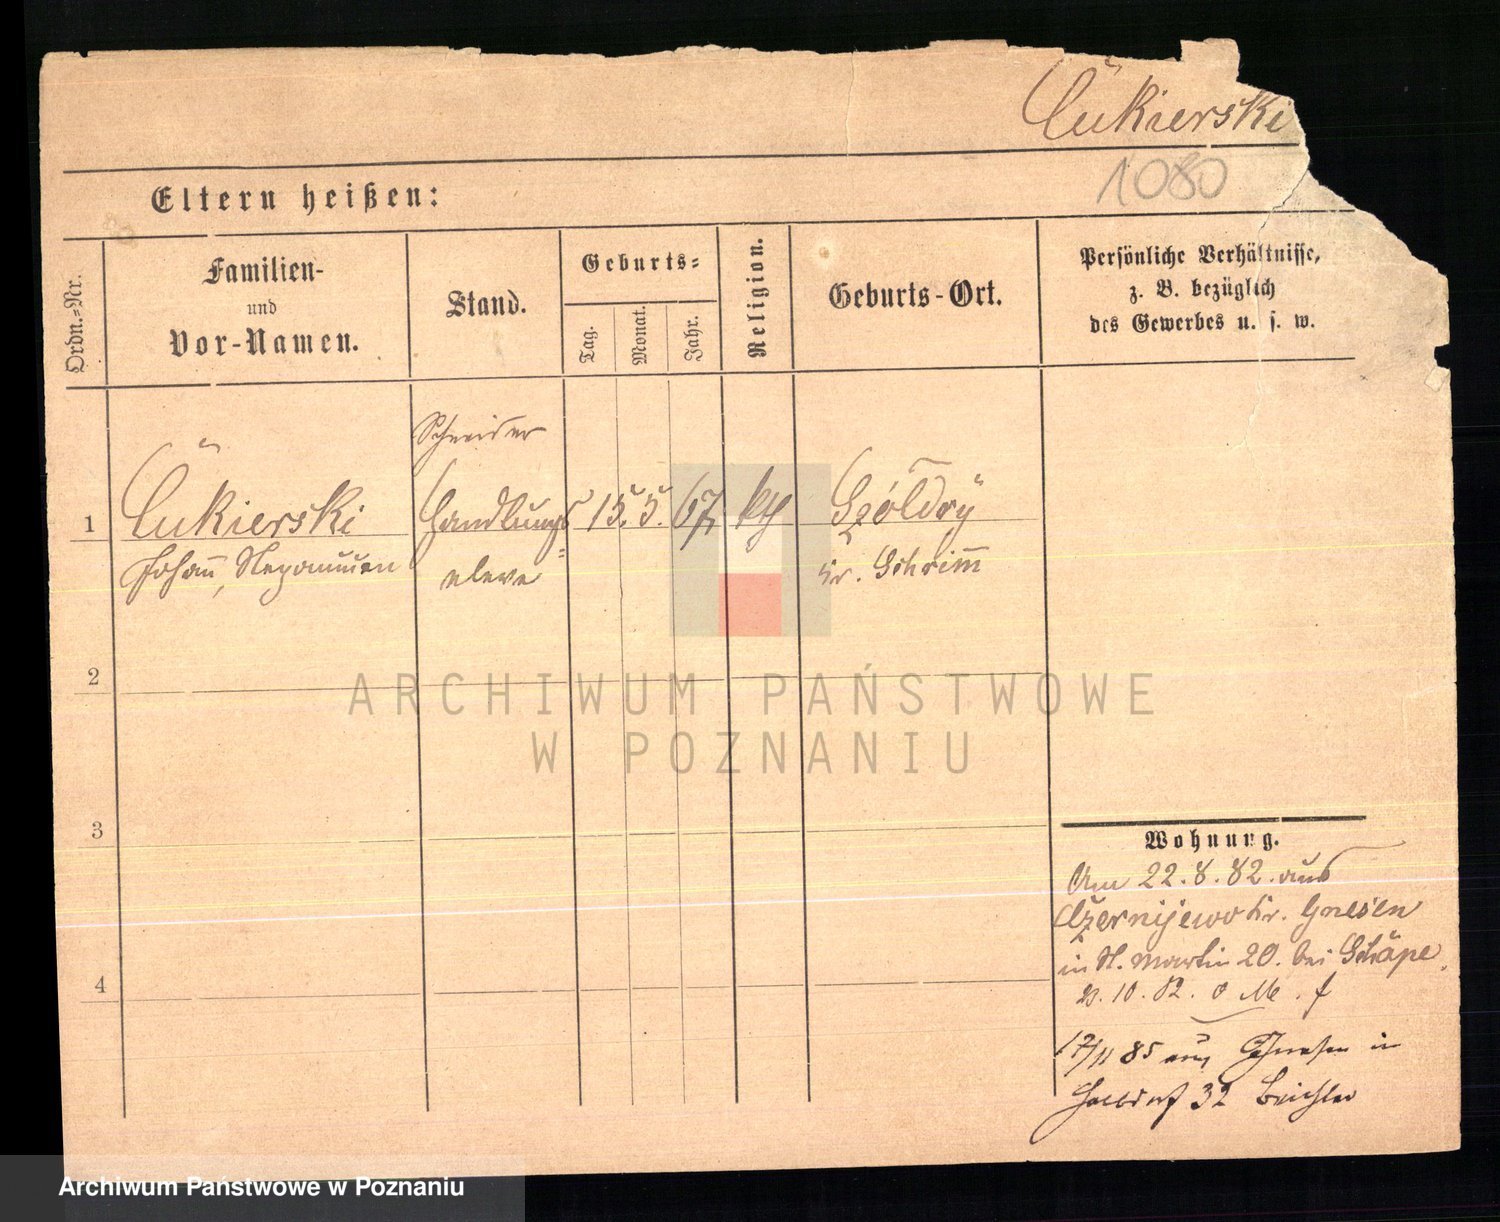 Cukierski
1080
Eltern heißen:
Ordn.-Nr.
Familien-
und
Vor-Namen.
Stand.
Geburts-
Tag.
Monat.
Jahr.
Religion.
Geburts-Ort.
Persönliche Verhältnisse,
z. B. bezüglich
des Gewerbes u. s. w.
Schneider
1 Cukierski Handlungs 15. 5. 67 kth
Johann, Nepomucen
eleve
Kr. Schrimm
2
3
4
ARCHIWUM PAŃSTWOWE
W POZNANIU
Wohnung.
Am 22.8.82. aus
Czernijewo Kr. Gnesen
in St. Martin 20. bei Schäpe
10. 82.
17/11 85 aus Gnesen in
Halbdorf 32
Archiwum Państwowe w Poznaniu